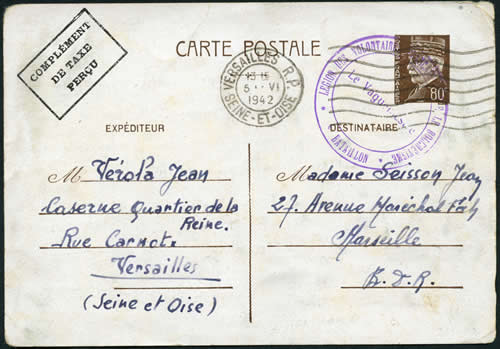 COMPLÉMENT
DE TAXE
PERÇU
CARTE POSTALE
VERSAILLES R.P.
13 15
6 VI
1942
SEINE-ET-OISE
LEGION DES VOLONTAIRES
LE BOLCHEVISME
Le Vaguemestre
BATAILLON
80
EXPÉDITEUR
M Vérola Jean
Caserne Quartier de la
Reine.
Rue Carnot.
Versailles
(Seine et Oise)
DESTINATAIRE
Madame Seisson Jean
27. Avenue Maréchal
Marseille
B.D.R.